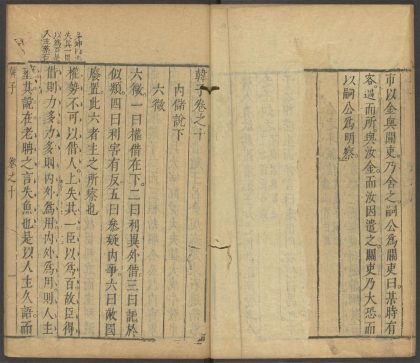 市以金與關吏乃舍之嗣公爲關吏曰某時有
客過而所與汝金而汝因遣之關吏乃大恐而
以嗣公爲明察
韓子卷之十
內儲說下
六微
六微一曰權借在下二曰利異外借三曰託於
似類四曰利害有反五曰參疑內爭六曰敵國
廢置此六者主之所察也
權勢不可以借人上失其一臣以爲百故臣得
借則力多力多則內外爲用內外爲用則人主
壅其說在老聃之言失魚也是以人主久語而
韓子 卷之十 一